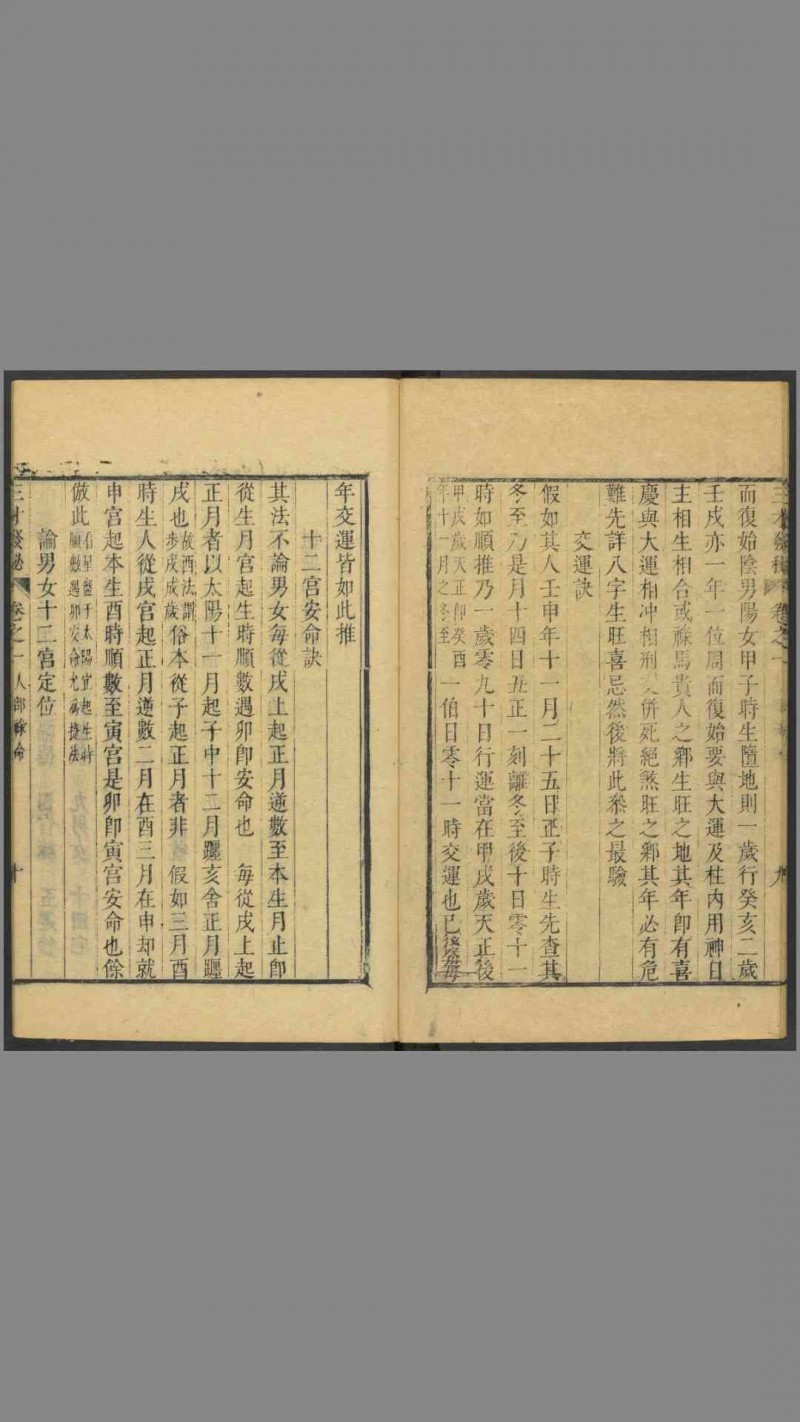 三才發秘 卷之一 九
而復始陰男陽女甲子時生墮地則一歲行癸亥二歲
壬戌亦一年一位周而復始要與大運及柱內用神日
主相生相合或祿馬貴人之鄉生旺之地其年卽有喜
慶與大運相冲相刑併死絕煞旺之鄉其年必有危
難先詳八字生旺喜忌然後將此叅之最驗
交運訣
假如其人壬申年十一月二十五日正子時生先查其
冬至乃是月十四日丑正一刻離冬至後十日零十一
時如順推乃一歲零九十日行運當在甲戌歲天正後
甲戌歲天正卽癸酉
年十一月之冬至
一伯日零十一時交運也已後毎
年交運皆如此推
十二宮安命訣
其法不論男女每從戌上起正月逆數至本生月止卽
從生月宮起生時順數遇卯卽安命也 每從戌上起
正月者以太陽十一月起子中十二月躔亥舍正月躔
戌也
故酉法謂
步戌成歲
俗本從子起正月者非 假如三月酉
時生人從戌宮起正月逆數二月在酉三月在申却就
申宮起本生酉時順數至寅宮是卯卽寅宮安命也餘
倣此
看星盤于太陽宜起生時
順數遇卯安命尤為捷法
論男女十二宮定位
三才發秘 卷之一人部 命 十